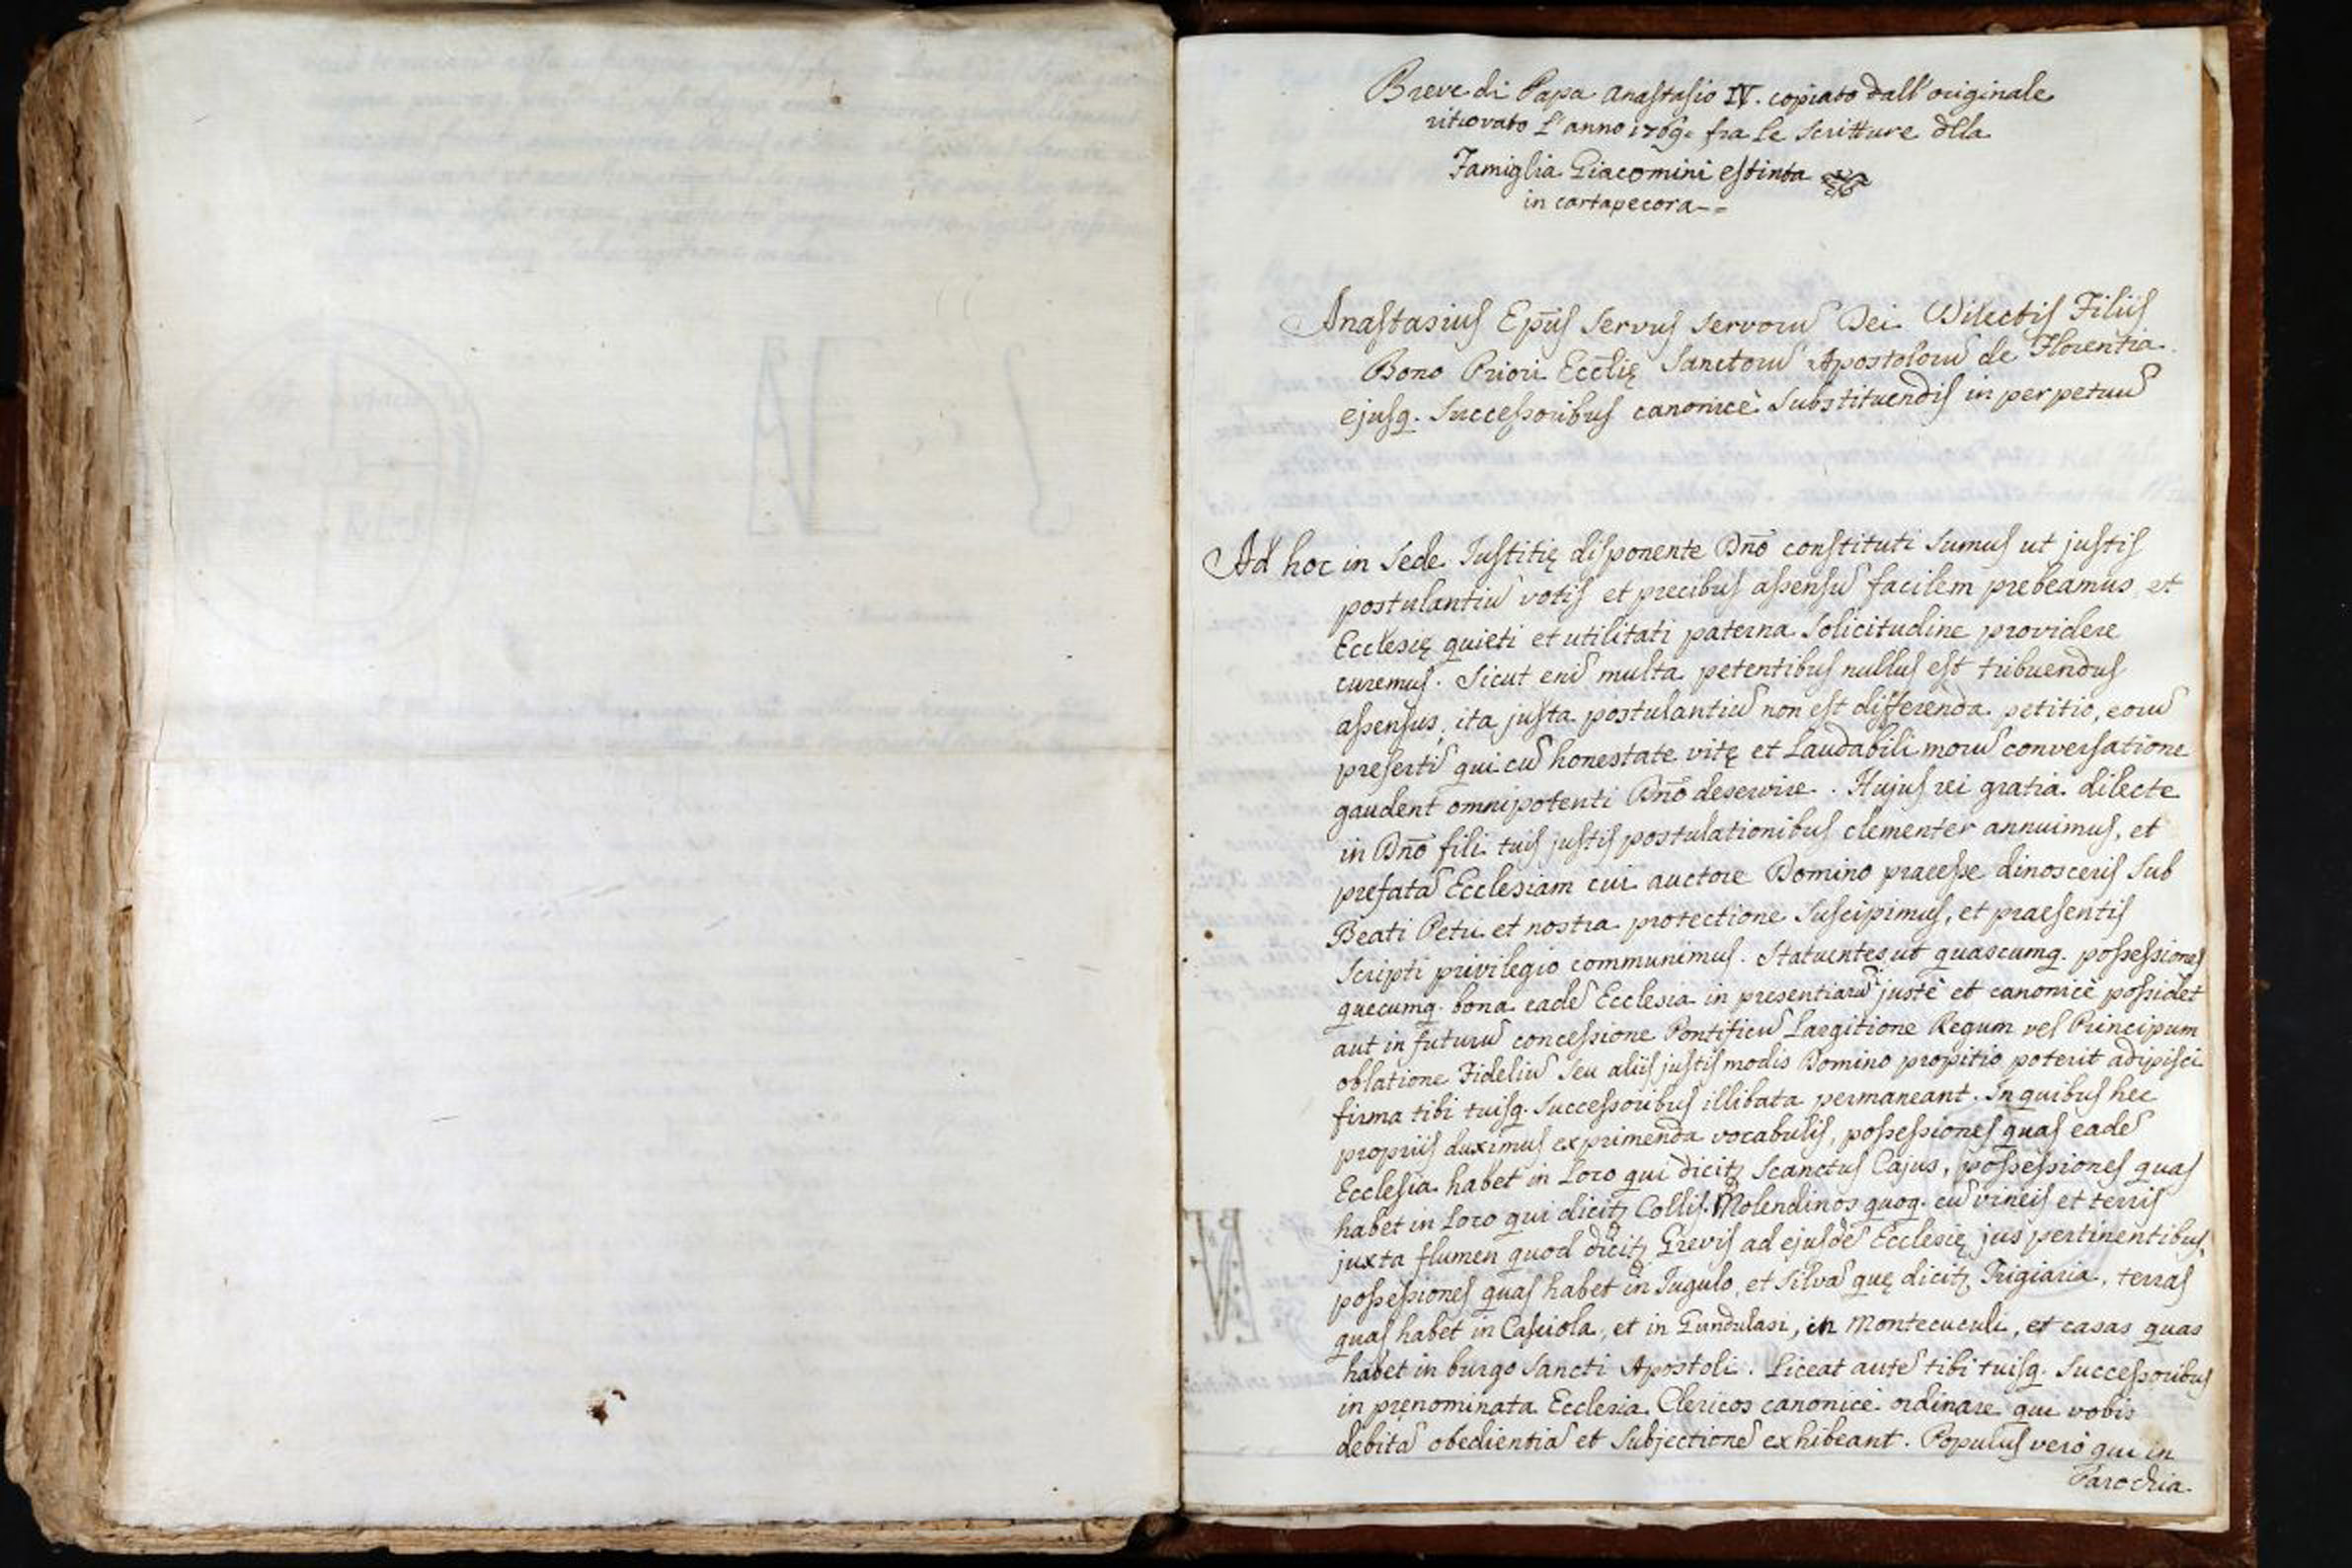 Breve di Papa Anastasio IV. copiato dall'originale
ritrovato l'anno 1769. fra le scritture dlla
Famiglia Giacomini estinta
in cartapecora
Anastasius Epūs servus servorū Dei Dilectis Filiis
Bono Priori Ecclię Sanctorū Apostolorū de Florentia
ejusq. successoribus canonicè substituendis in perpetuū
Ad hoc in sede Justitię disponente Dnō constituti sumus ut justis
postulantiū votis et precibus assensū facilem prebeamus, et
Ecclesię quieti et utilitati paterna solicitudine providere
curemus. Sicut enī multa petentibus nullus est tribuendus
assensus, ita justa postulantiū non est differenda petitio, eorū
presertī qui cū honestate vitę et laudabili morū conversatione
gaudent omnipotenti Dnō deservire. Hujus rei gratia dilecte
in Dnō fili tuis justis postulationibus clementer annuimus, et
prefatā Ecclesiam cui auctore Domino praeesse dinosceris sub
Beati Petri et nostra protectione suscipimus, et praesentis
scripti privilegio communimus. Statuentes ut quascumq. possessiones
quecumq. bona eadē Ecclesia in presentiarū justè et canonicè possidet
aut in futurū concessione Pontificū largitione Regum vel Principum
oblatione Fideliū seu aliis justis modis Domino propitio poterit adipisci
firma tibi tuisq. successoribus illibata permaneant. In quibus hec
propriis duximus exprimenda vocabulis, possessiones quas eadē
Ecclesia habet in loco qui dicitʒ Scanctus Cajus, possessiones quas
habet in loco qui dicitʒ Collis. Molendinos quoq. cū vineis et terris
juxta flumen quod dicitʒ Grevis ad ejusdē Ecclesię jus pertinentibus,
possessiones quas habet in Jugulo, et silvā quę dicitʒ Frigiaria, terras
quas habet in Casciola, et in Gundulasi, in Montecuculi, et casas quas
habet in burgo Sancti Apostoli. Liceat autē tibi tuisq. successoribus
in pręnominata Ecclesia Clericos canonicè ordinare qui vobis
debitā obedientiā et subjectionē exhibeant. Populus verò qui in
Parochia